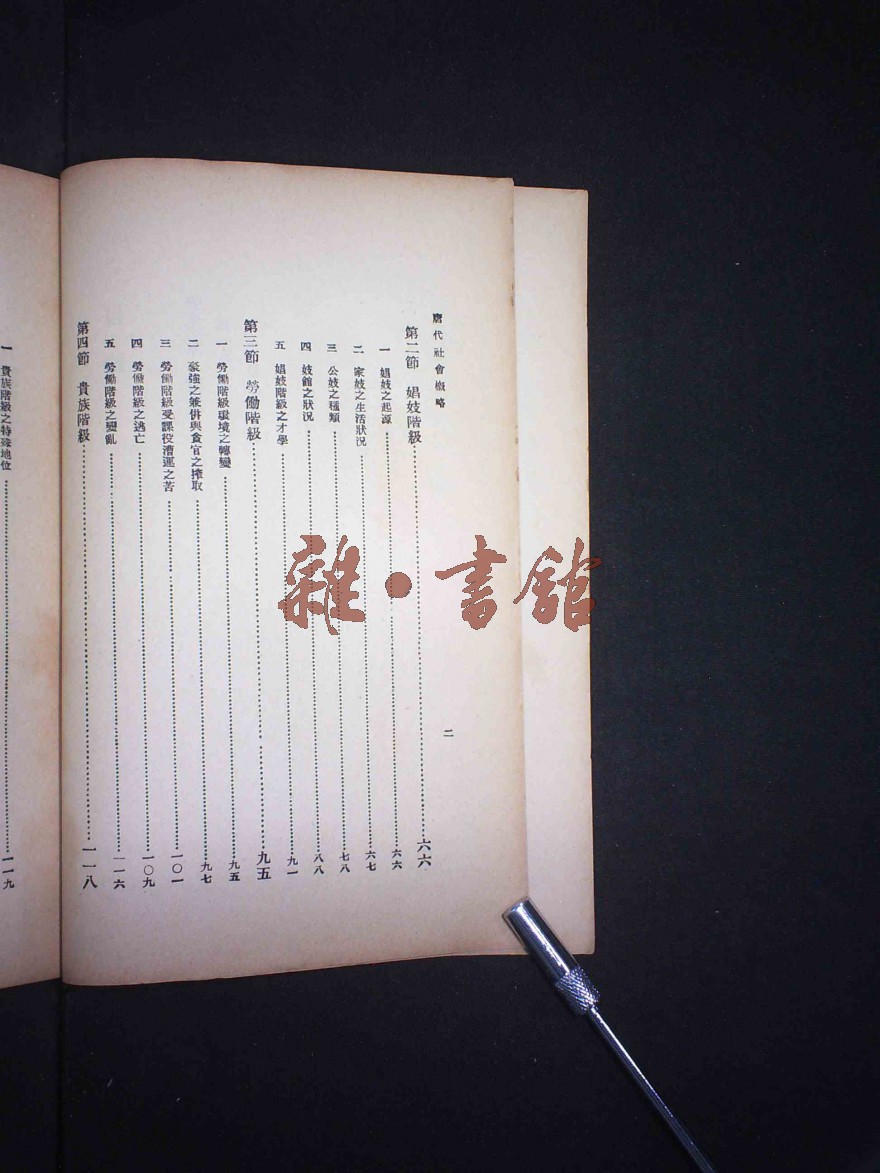 唐代社會概略
第二節　娼妓階級……六六
一　娼妓之起源……六六
二　家妓之生活狀況……六七
三　公妓之種類……七八
四　妓館之狀況……八八
五　娼妓階級之才學……九一
第三節　勞働階級……九五
一　勞働階級環境之轉變……九五
二　豪強之兼併與貪官之搾取……九七
三　勞働階級受課役漕運之苦……一〇一
四　勞働階級之逃亡……一〇九
五　勞働階級之變亂……一一六
第四節　貴族階級……一一八
二
一　貴族階級之特殊地位……一一九
雜・書館